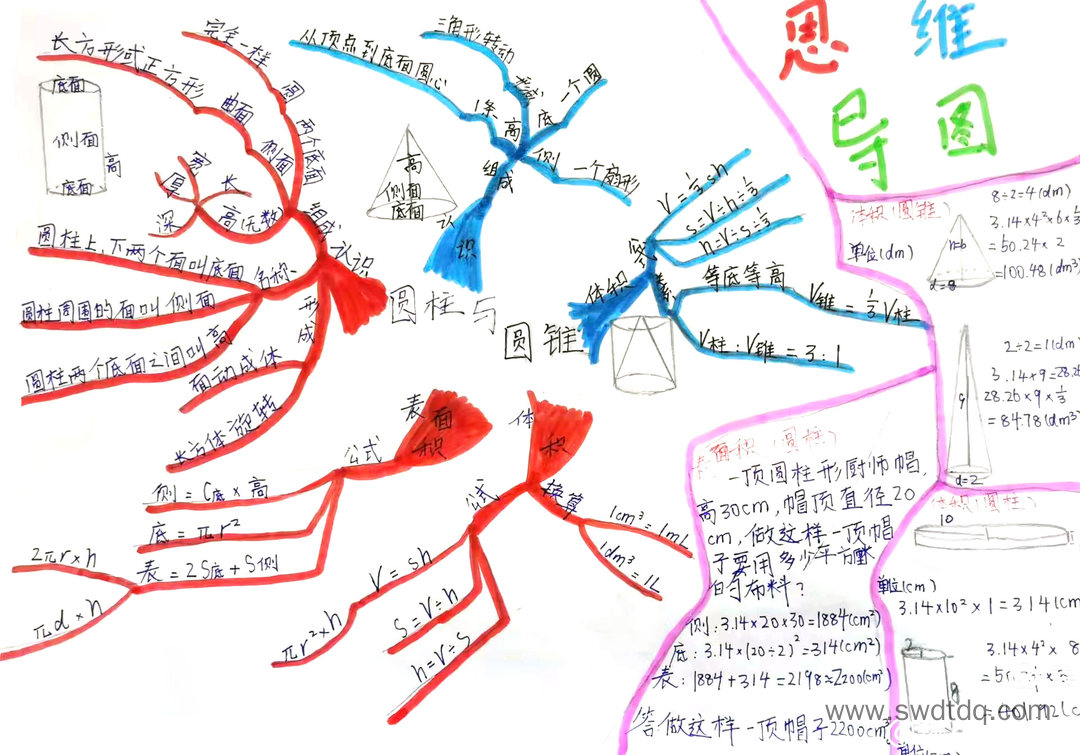 思维
导图
圆柱与
圆锥
认识
组成
两个底面
圆
完全一样
侧面
曲面
长方形或正方形
高
无数
长
宽
厚
深
名称
圆柱上、下两个面叫底面
圆柱周围的面叫侧面
圆柱两个底面之间叫高
形成
面动成体
长方体旋转
底面
侧面
高
底面
认识
组成
高
1条
从顶点到底面圆心
三角形转动
底
一个圆
侧
一个扇形
高
侧面
底面
体积
V=⅓sh
s=V÷h÷⅓
h=V÷s÷⅓
等底等高
V锥=⅓V柱
V柱:V锥=3:1
表面积
公式
侧=C底×高
底=πr²
表=2S底+S侧
2πr×h
πd×h
体积
公式
V=sh
πr²×h
S=V÷h
h=V÷S
换算
1cm³=1mL
1dm³=1L
表面积(圆柱)
一顶圆柱形厨师帽,
高30cm,帽顶直径20
cm,做这样一顶帽
子要用多少平方厘
的布料?
侧:3.14×20×30=1884(cm²)
底:3.14×(20÷2)²=314(cm²)
表:1884+314=2198≈2200(cm²)
答做这样一顶帽子2200cm²
体积(圆锥)
单位(dm)
h=6
d=8
8÷2=4(dm)
3.14×4²×6×⅓
=50.24×2
=100.48(dm³)
9
d=2
2÷2=1(dm)
3.14×9=28.26
28.26×9×⅓
=84.78(dm³)
体积(圆柱)
10
单位(cm)
3.14×10²×1=314(cm
2
8
3.14×4²×8
www.swdtdq.com